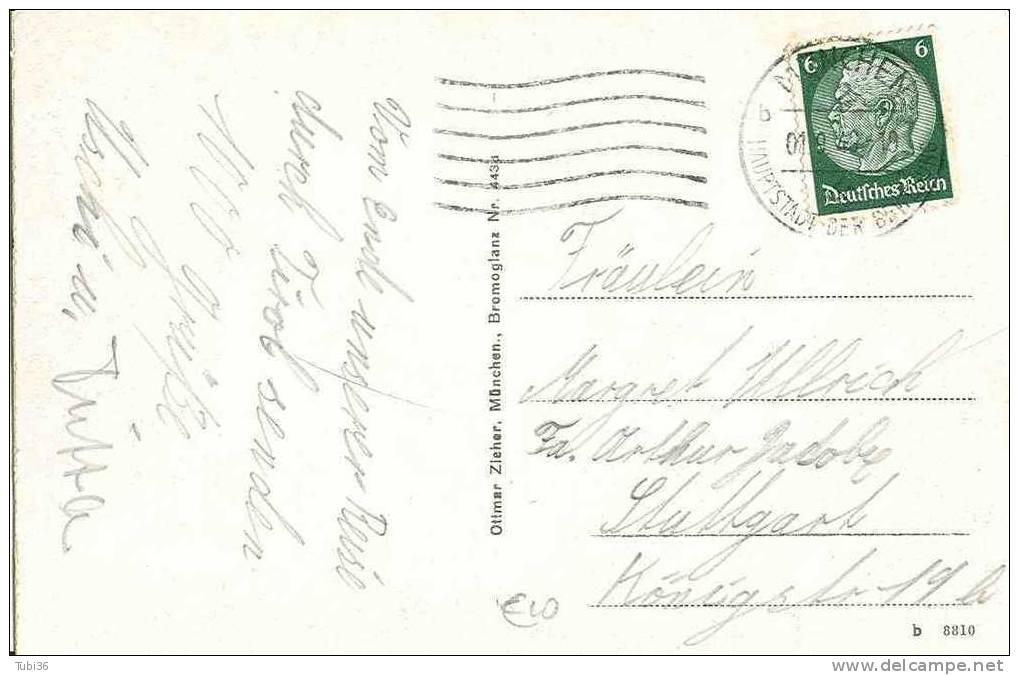 Vom Ende unserer Reise
durch Tirol senden
Grüße
Jutta
Ottmar Zieher, München., Bromoglanz Nr. 4436
MÜNCHEN
b
HAUPTSTADT DER BEWEGUNG
6 6
Deutsches Reich
Fräulein
Margret Ullrich
Fa. Arthur Jacoby
Stuttgart
Königstr 19 b
b 8810
Tubi36
delcampe.net